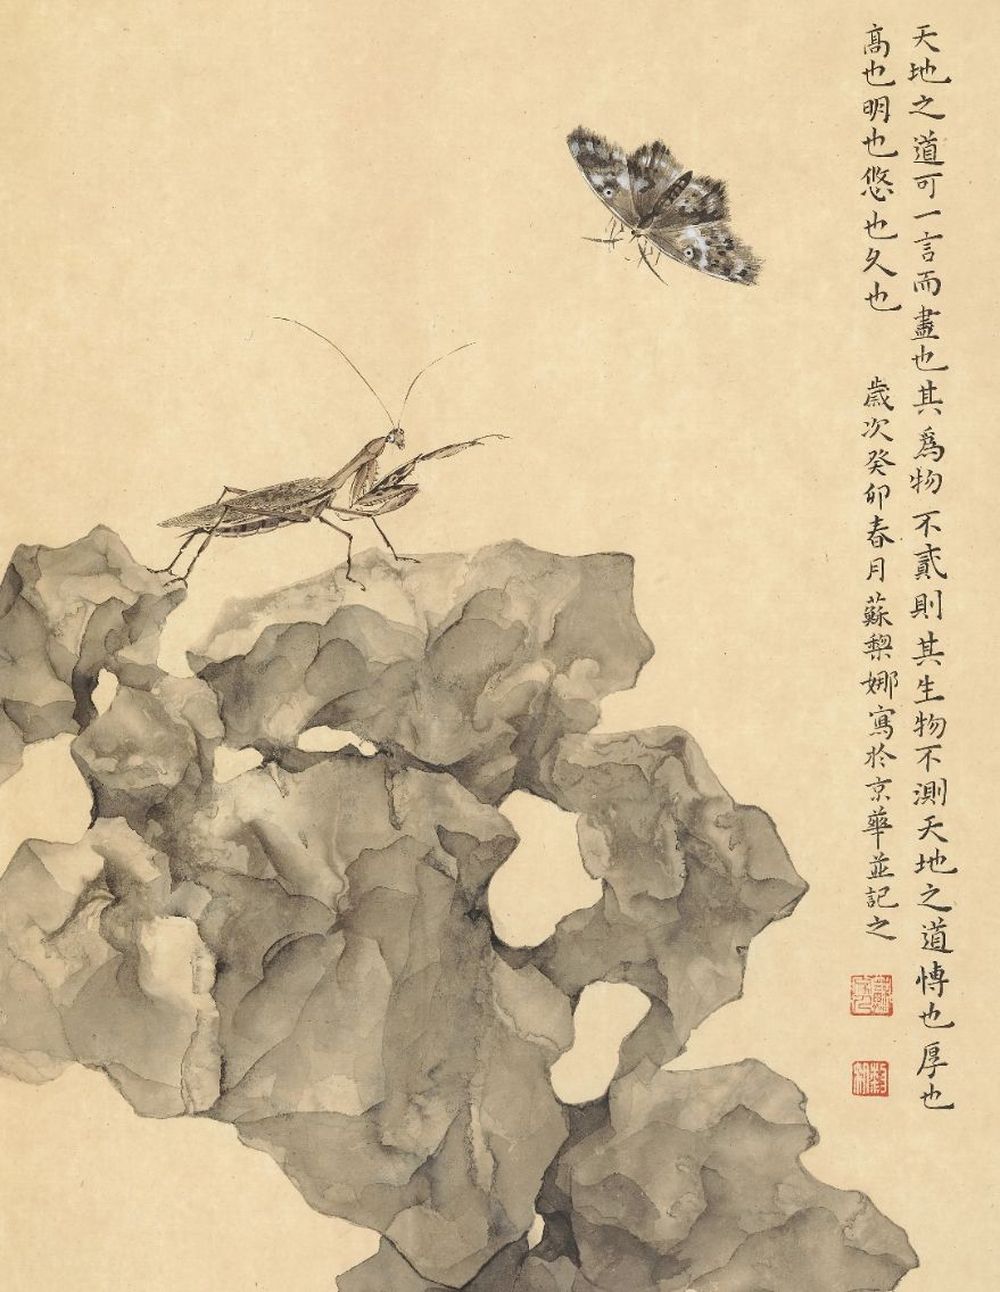 天地之道可一言而盡也其為物不貳則其生物不測天地之道博也厚也
高也明也悠也久也 歲次癸卯春月蘇棃娜寫於京華並記之